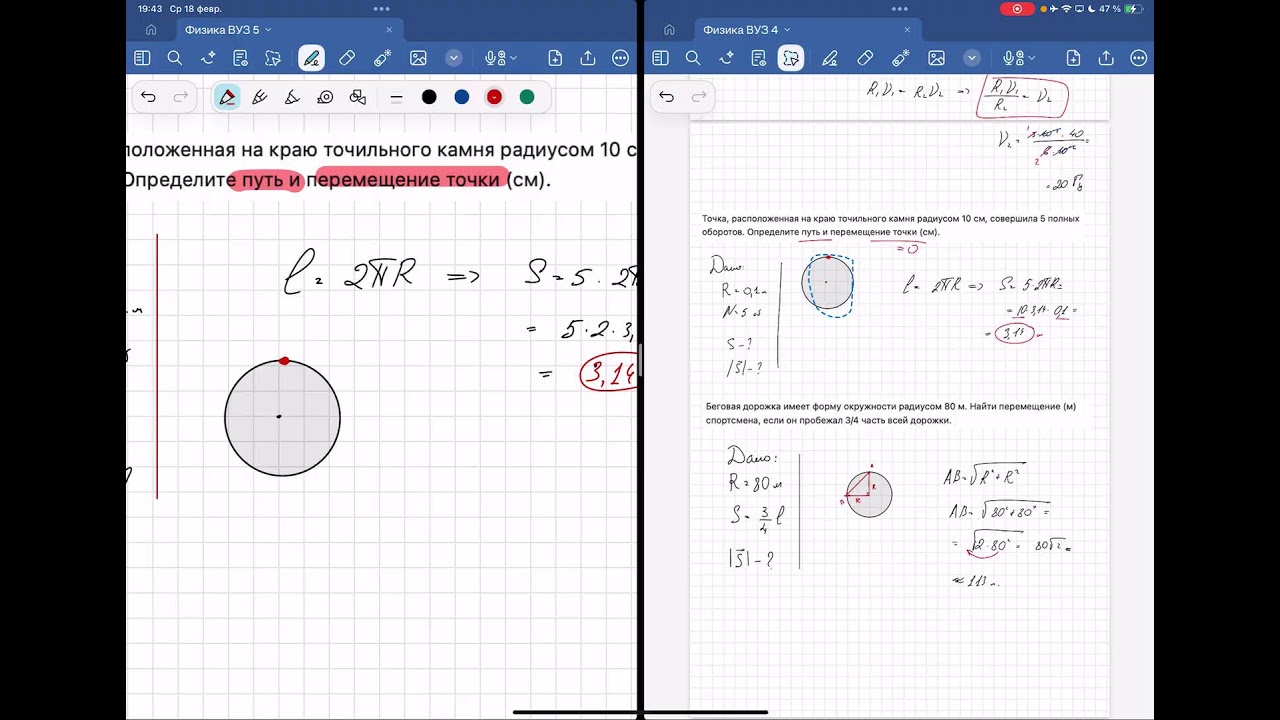 19:43 Ср 18 февр.
Физика ВУЗ 5
положенная на краю точильного камня радиусом 10 с
Определите путь и перемещение точки (см).
ℓ = 2πR => S = 5 · 2π
= 5 · 2 · 3,
= 3,14
47 %
Физика ВУЗ 4
R₁ν₁ = R₂ν₂ => R₁ν₁/R₂ = ν₂
= 20 Гц
Точка, расположенная на краю точильного камня радиусом 10 см, совершила 5 полных
оборотов. Определите путь и перемещение точки (см).
= 0
Дано:
R = 0,1 м
N = 5 об
S - ?
|S⃗| - ?
ℓ = 2πR => S = 5 · 2πR =
= 10 · 3,14 · 0,1 =
= 3,14 м
Беговая дорожка имеет форму окружности радиусом 80 м. Найти перемещение (м)
спортсмена, если он пробежал 3/4 часть всей дорожки.
Дано:
R = 80 м
S = 3/4 ℓ
|S⃗| - ?
A
R
B
R
AB = √R² + R²
AB = √80² + 80² =
= √2 · 80² = 80√2 ≈
≈ 113 м